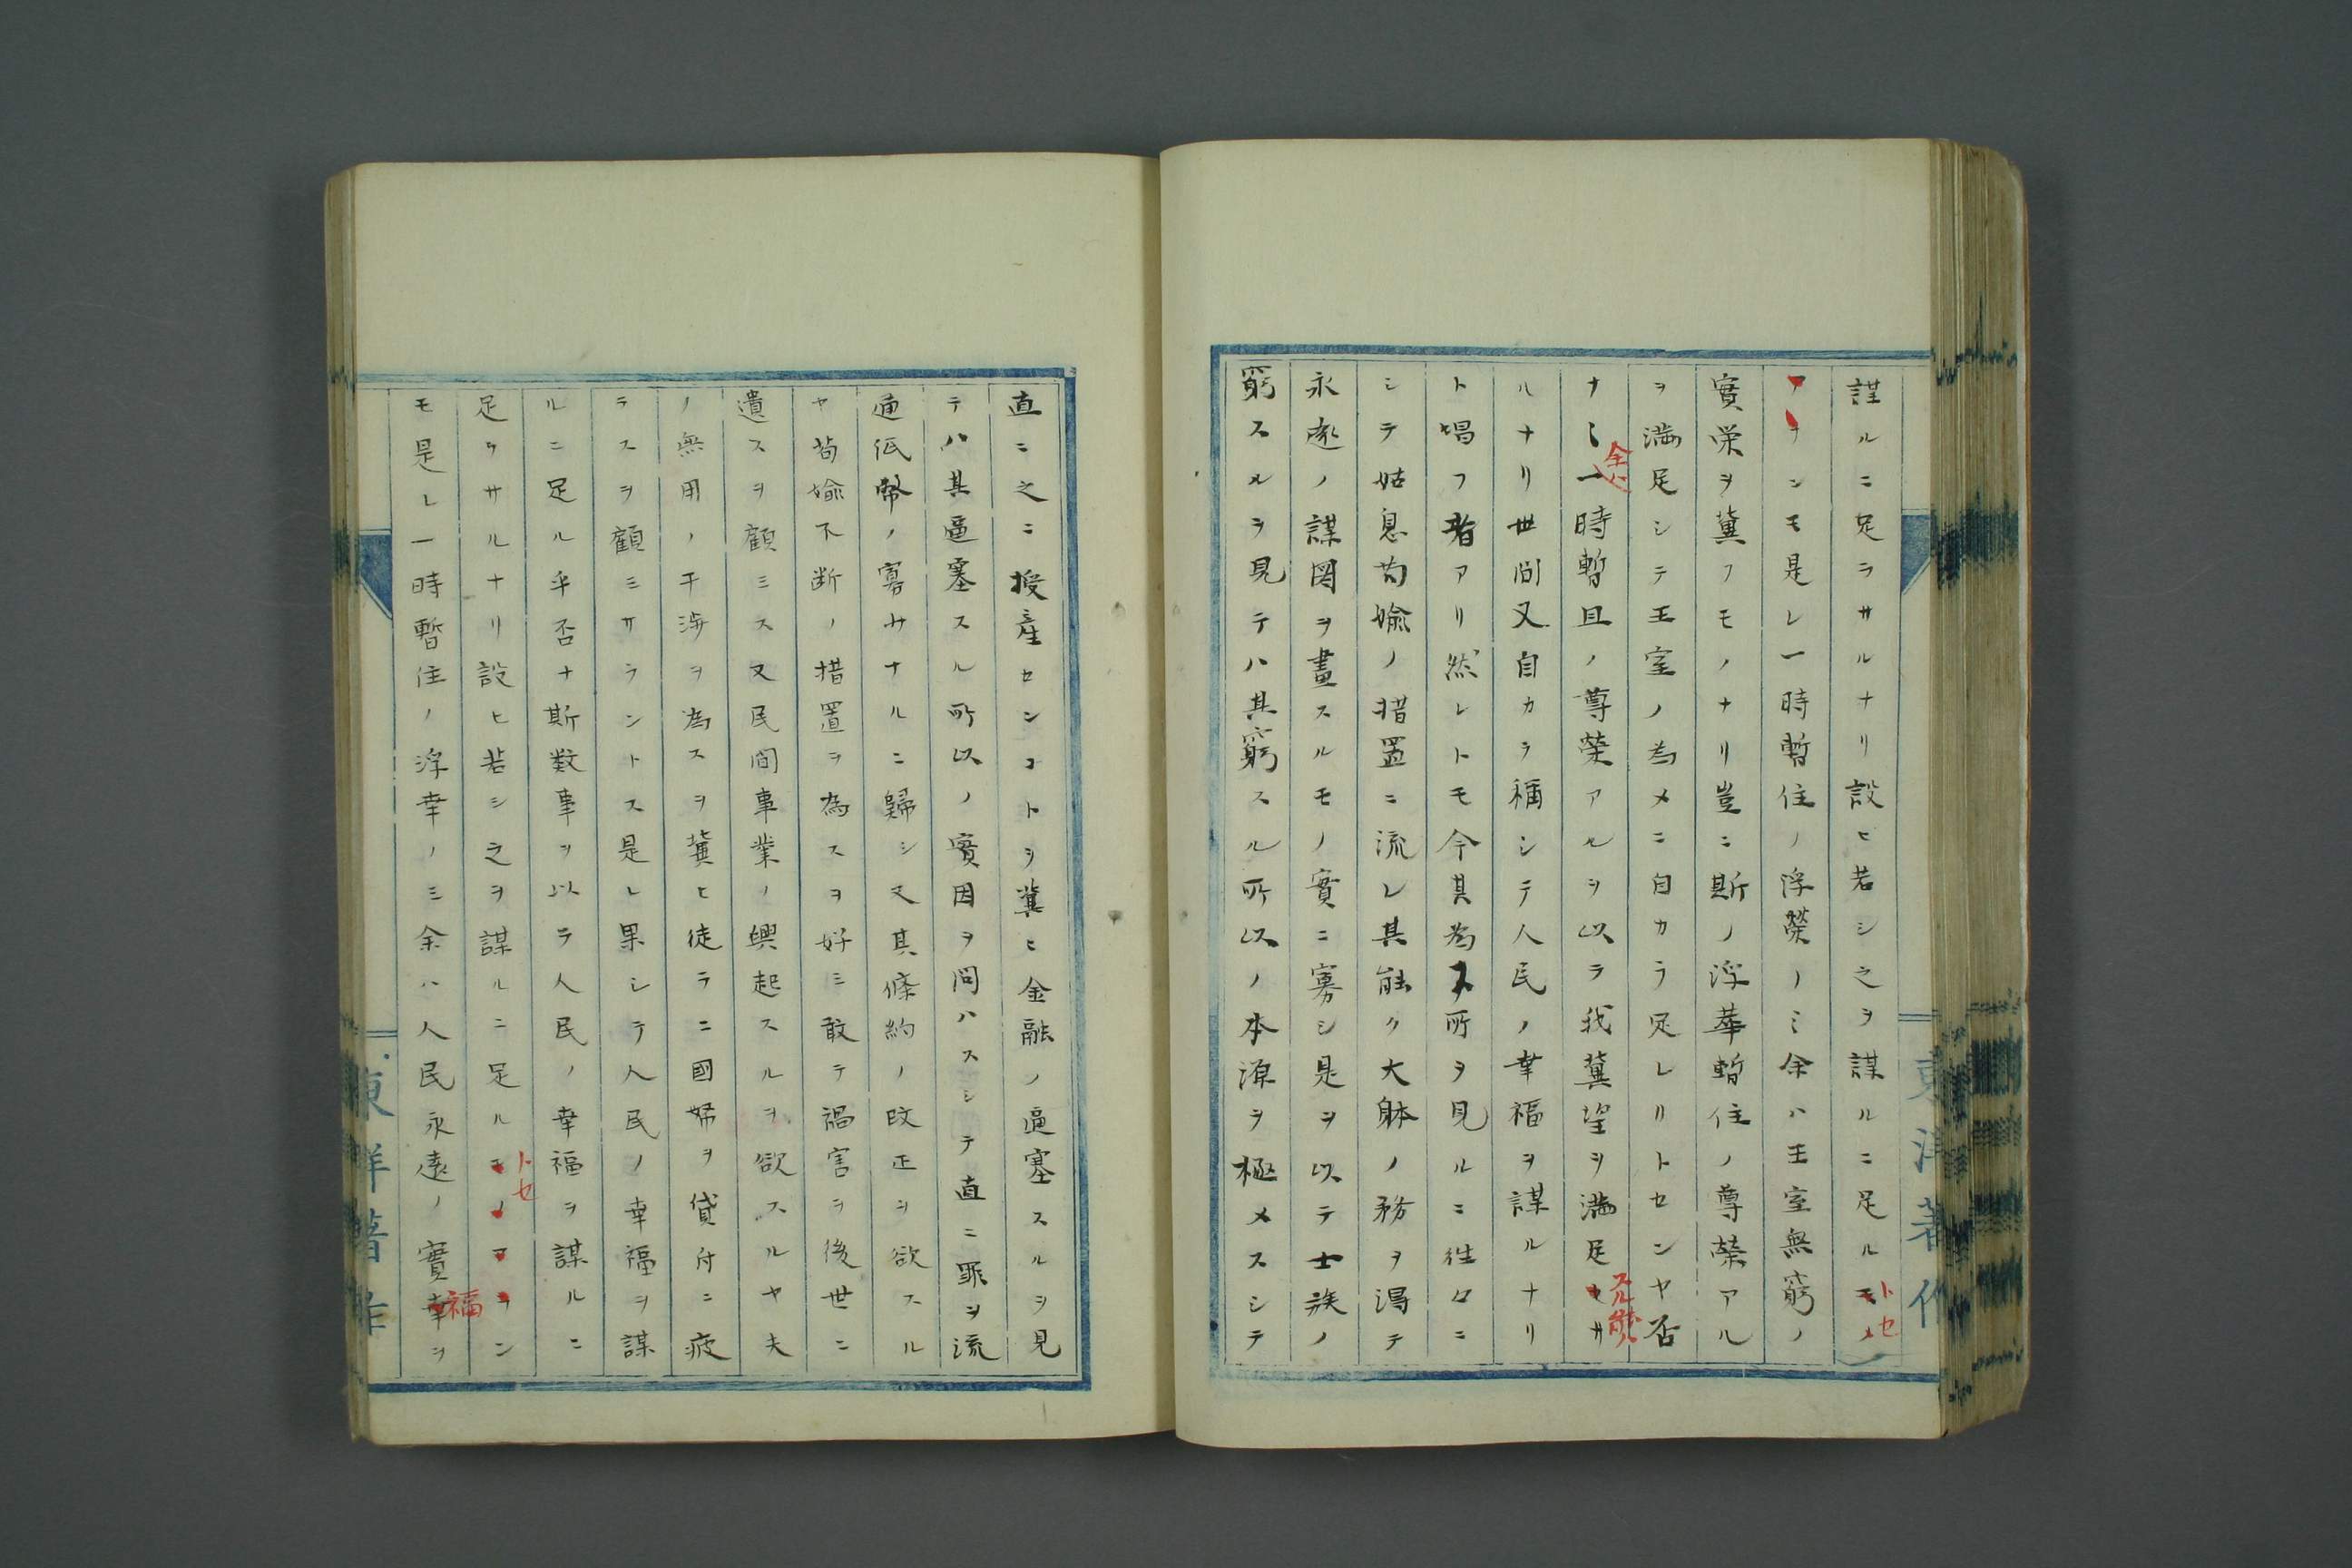 謀ルニ足ラサルナリ設ヒ若シ之ヲ謀ルニ足ルモノ
トセ
アランモ是レ一時暫住ノ浮榮ノミ余ハ王室無窮ノ
實栄ヲ冀フモノナリ豈ニ斯ノ浮華暫住ノ尊榮アル
ヲ満足シテ王室ノ為メニ自カラ足レリトセンヤ否
ナ〻一時暫且ノ尊榮アルヲ以テ我冀望ヲ満足セサ
余ハ
スル能ハ
ルナリ世間又自カラ稱シテ人民ノ幸福ヲ謀ルナリ
ト唱フ者アリ然レトモ今其為ス所ヲ見ルニ往々ニ
シテ姑息苟媮ノ措置ニ流レ其能ク大躰ノ務ヲ得テ
永遠ノ謀図ヲ畫スルモノ實ニ寡シ是ヲ以テ士族ノ
窮スルヲ見テハ其窮スル所以ノ本源ヲ極メスシテ
直ニ之ニ授産センコトヲ冀ヒ金融ノ逼塞スルヲ見
テハ其逼塞スル所以ノ實因ヲ問ハスシテ直ニ罪ヲ流
通低幣ノ寡ナルニ歸シ又其條約ノ改正ヲ欲スル
ヤ苟媮不断ノ措置ヲ為スヲ好ミ敢テ禍害ヲ後世ニ
遺スヲ顧ミス又民間事業ノ興起スルヲ欲スルヤ夫
ノ無用ノ干渉ヲ為スヲ冀ヒ徒ラニ國帑ヲ貸付ニ疲
ラスヲ顧ミサラントス是レ果シテ人民ノ幸福ヲ謀
ルニ足ル乎否ナ斯数事ヲ以テ人民ノ幸福ヲ謀ルニ
足ラサルナリ設ヒ若シ之ヲ謀ルニ足ルモノアラン
トセ
モ是レ一時暫住ノ浮幸ノミ余ハ人民永遠ノ實幸ヲ
福
東洋著作